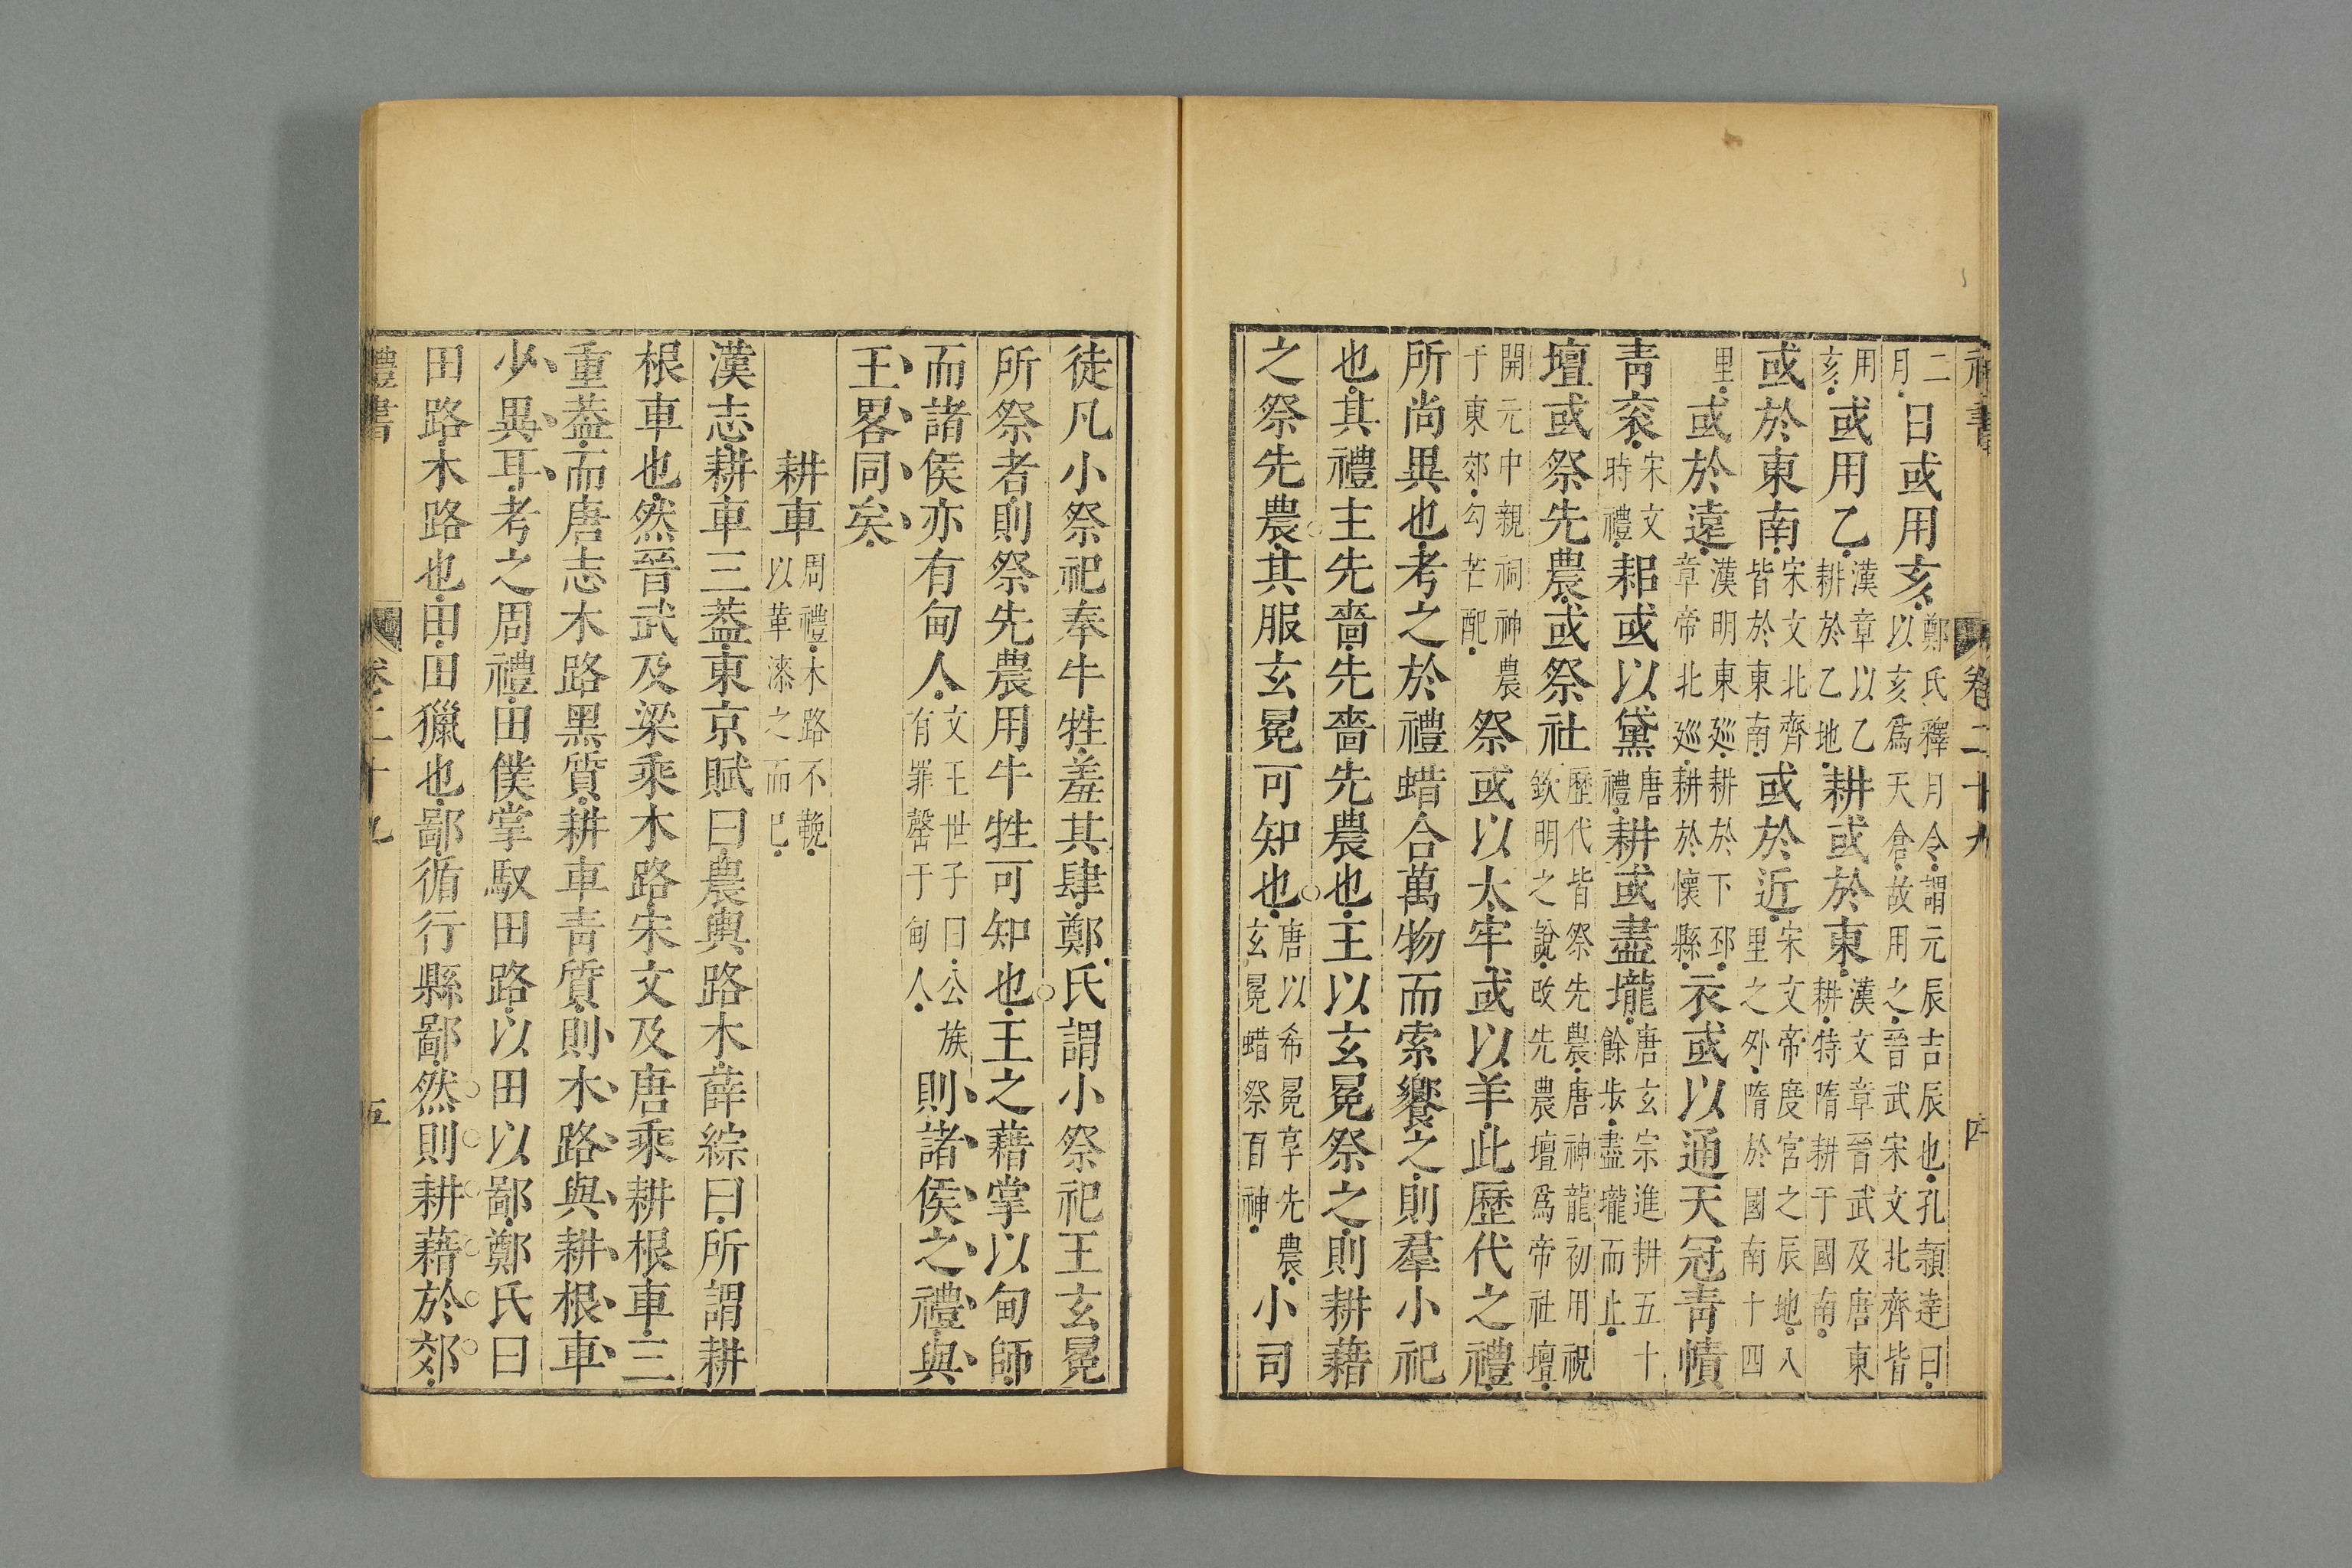 禮書 卷二十九 四
二月日或用亥鄭氏釋月令謂元辰吉辰也孔穎達曰以亥爲天倉故用之晉武宋文北齊皆
用亥或用乙漢章以乙耕於乙地耕或於東漢文章晉武及唐東耕特隋耕于國南
或於東南宋文北齊皆於東南或於近宋文帝度宮之辰地八里之外隋於國南十四
里或於遠漢明東廵耕於下邳章帝北廵耕於懷縣衣或以通天冠青幘
青衮宋文時禮耜或以黛唐禮耕或盡壠唐玄宗進耕五十餘步盡壠而止
壇或祭先農或祭社歷代皆祭先農唐神龍初用祝欽明之說改先農壇爲帝社壇
開元中親祠神農于東郊勾芒配祭或以太牢或以羊此歷代之禮
所尚異也考之於禮蜡合萬物而索饗之則羣小祀
也其禮主先嗇先嗇先農也主以玄冕祭之則耕藉
之祭先農其服玄冕可知也唐以希冕享先農玄冕蜡祭百神小司
徒凡小祭祀奉牛牲羞其肆鄭氏謂小祭祀王玄冕
所祭者則祭先農用牛牲可知也王之藉掌以甸師
而諸侯亦有甸人文王世子曰公族有罪罄于甸人則諸侯之禮與
王畧同矣
耕車周禮木路不鞔以革漆之而已
漢志耕車三葢東京賦曰農輿路木薛綜曰所謂耕
根車也然晉武及梁乘木路宋文及唐乘耕根車三
重葢而唐志木路黑質耕車青質則木路與耕根車
少異耳考之周禮田僕掌馭田路以田以鄙鄭氏曰
田路木路也田田獵也鄙循行縣鄙然則耕藉於郊
禮書 卷二十九 五